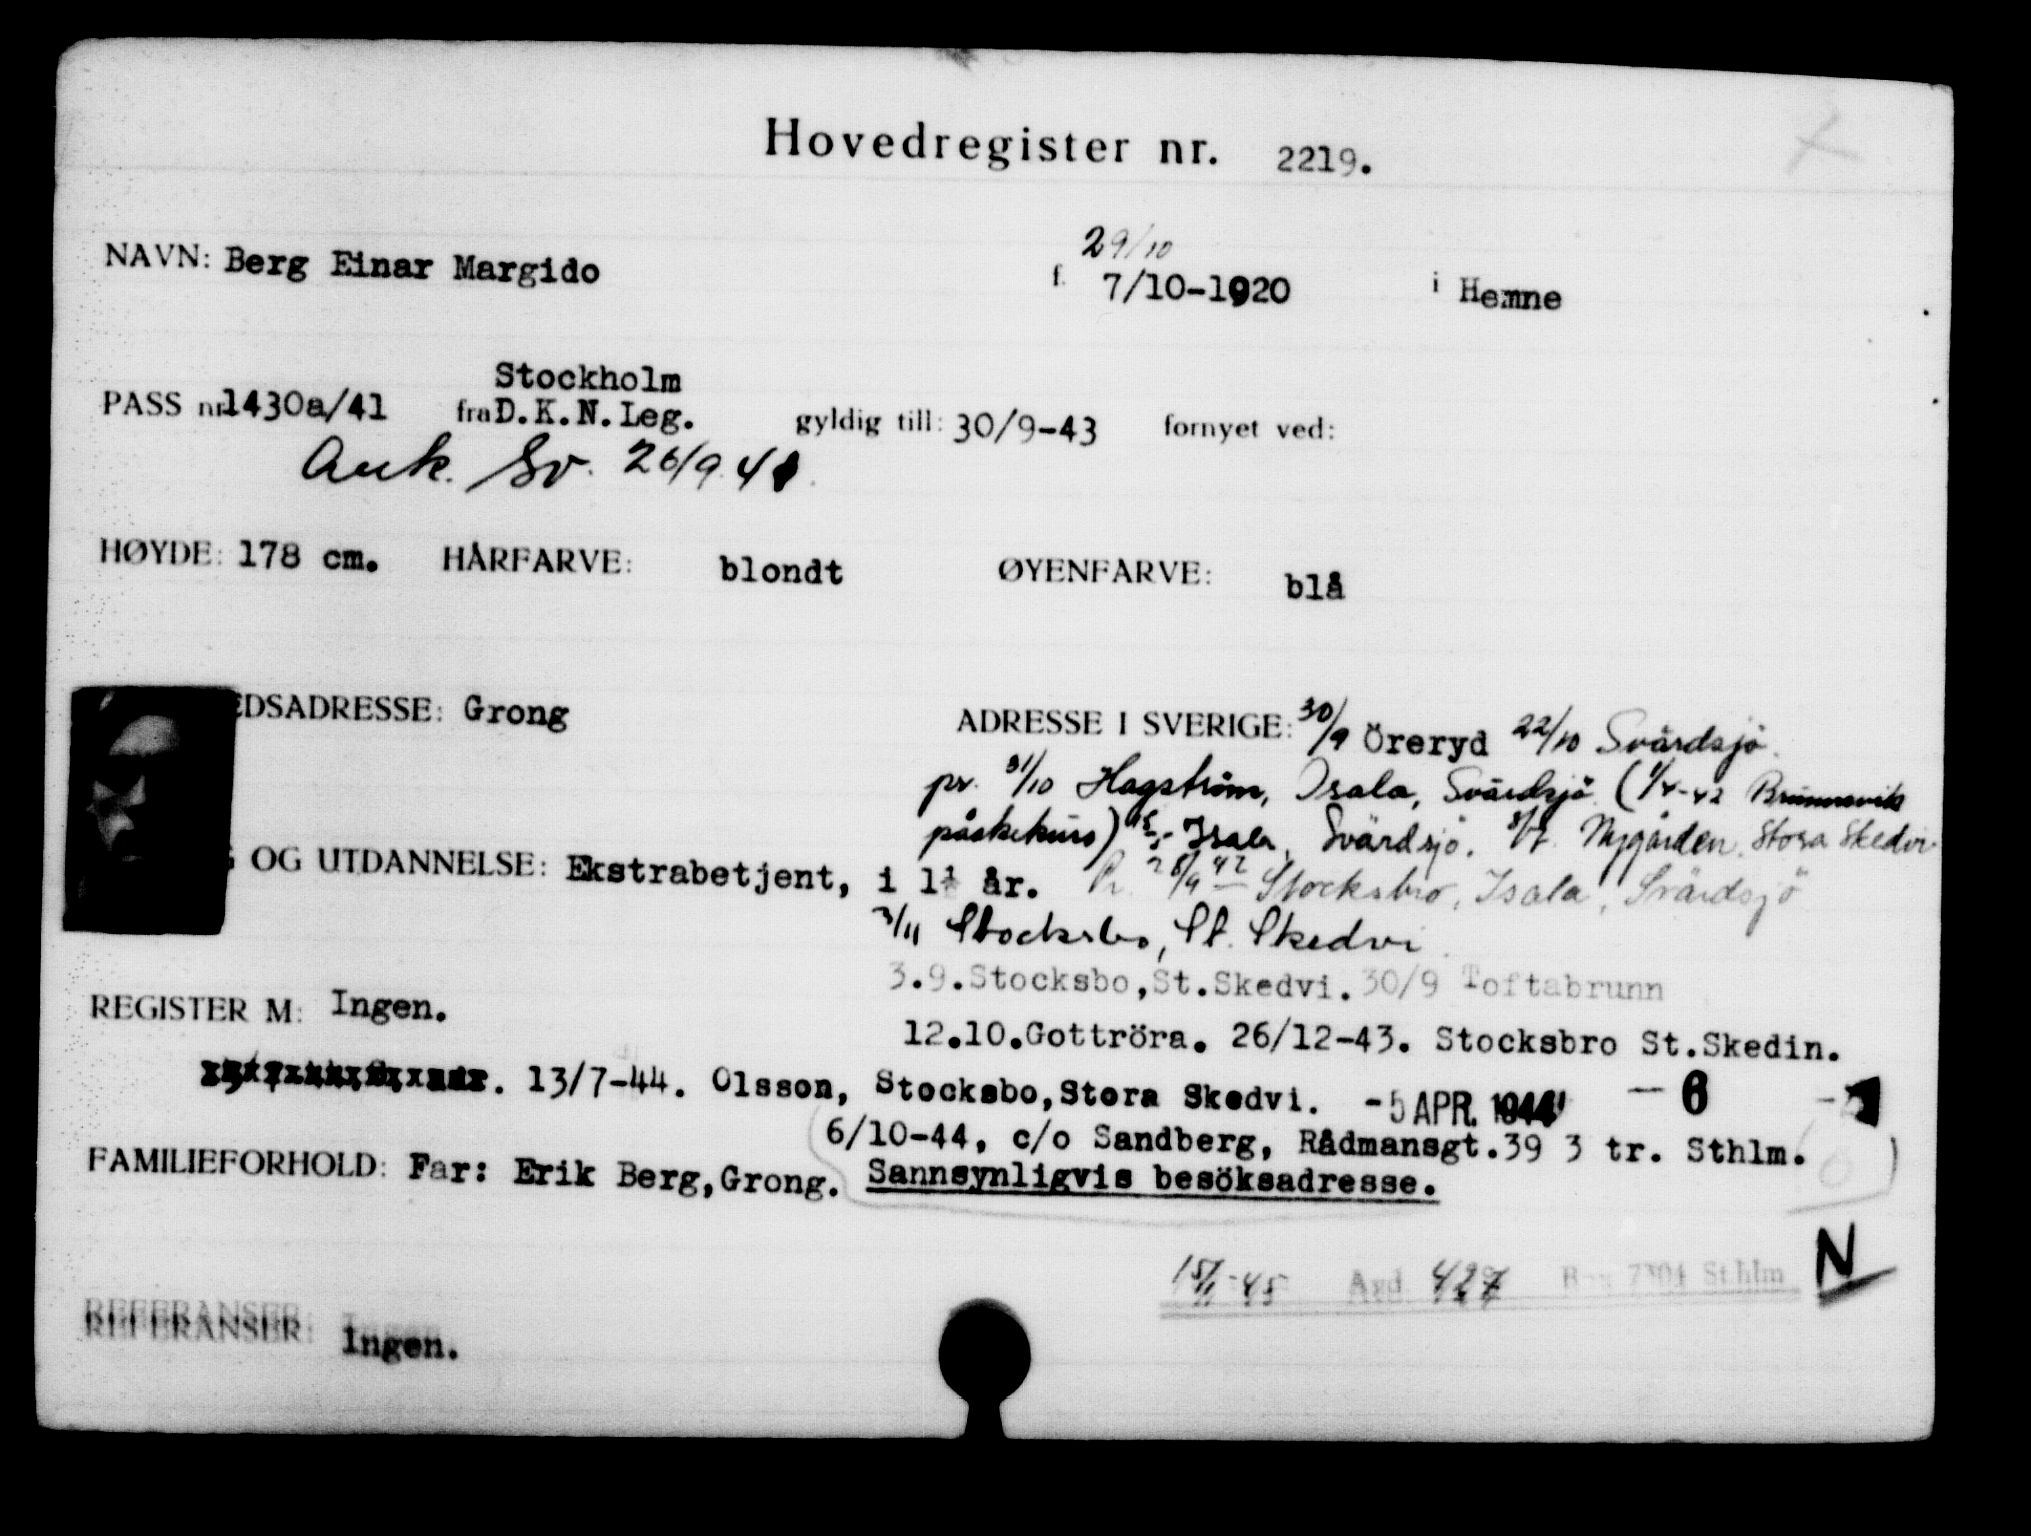 Hovedregister nr. 2219.
29/10
NAVN: Berg Einar Margido f. 7/10-1920 i Hemne
Stockholm
PASS nr 1430a/41 fra D.K.N.Leg. gyldig till: 30/9-43 fornyet ved:
Ank. Sv. 26/9 41.
HØYDE: 178 cm. HÅRFARVE: blondt ØYENFARVE: blå
EDSADRESSE: Grong ADRESSE I SVERIGE: 30/9 Öreryd 22/10 Svärdsjö.
pr. 31/10 Hagström, Isala, Svärdsjö (1/4-42 Brunnsvik
påskekurs) Isala, Svärdsjö. Nygården. Stora Skedvi
G OG UTDANNELSE: Ekstrabetjent, i 1½ år. Pr. 28/9 42 Stocksbro, Isala, Svärdsjö
3/11 Stocksbo, St. Skedvi.
3.9.Stocksbo,St.Skedvi. 30/9 Toftabrunn
REGISTER M: Ingen.
12.10.Gottröra. 26/12-43. Stocksbro St.Skedin.
13/7-44. Olsson, Stocksbo,Stora Skedvi. -5 APR. 1944 - 6 -
6/10-44, c/o Sandberg, Rådmansgt.39 3 tr. Sthlm.
FAMILIEFORHOLD: Far: Erik Berg,Grong. Sannsynligvis besöksadresse.
N
15/11-45 Avd 427 Box 7304 Sthlm
REFERANSER: Ingen.